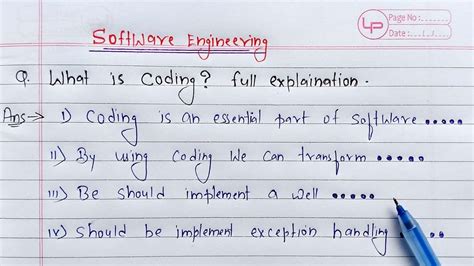 Software Engineering
LP
Page No:
Date: / /
Q. What is Coding? full explaination.
Ans→ i) Coding is an essential part of software .....
ii) By using Coding We Can transform .....
iii) Be should implement a well .....
iv) should be implement exception handling .....